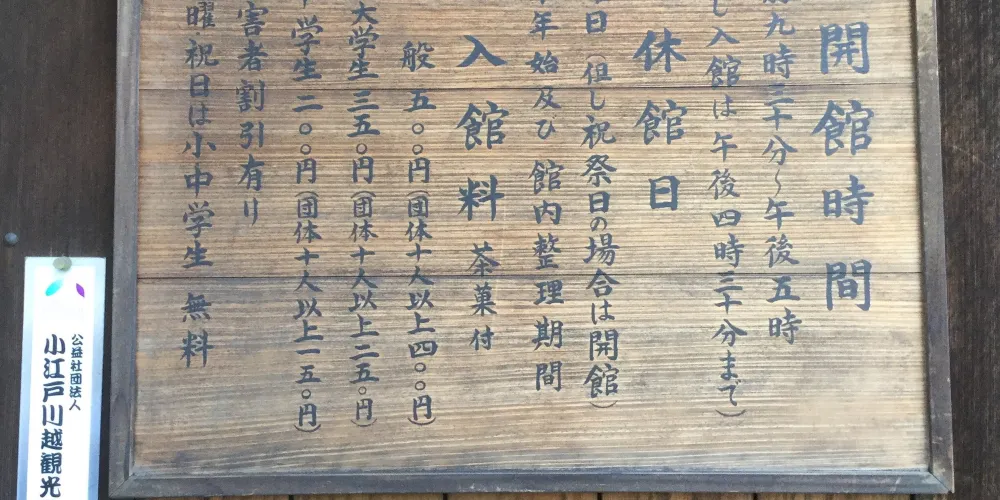 開館時間
九時三十分〜午後五時
し入館は午後四時三十分まで)
休館日
日(但し祝祭日の場合は開館)
年始及び 館内整理期間
入館料 茶菓付
般 五〇〇円(団体十人以上四〇〇円)
大学生 三五〇円(団体十人以上二五〇円)
学生 二〇〇円(団体十人以上一五〇円)
害者割引有り
曜祝日は小中学生 無料
公益社団法人
小江戸川越観光